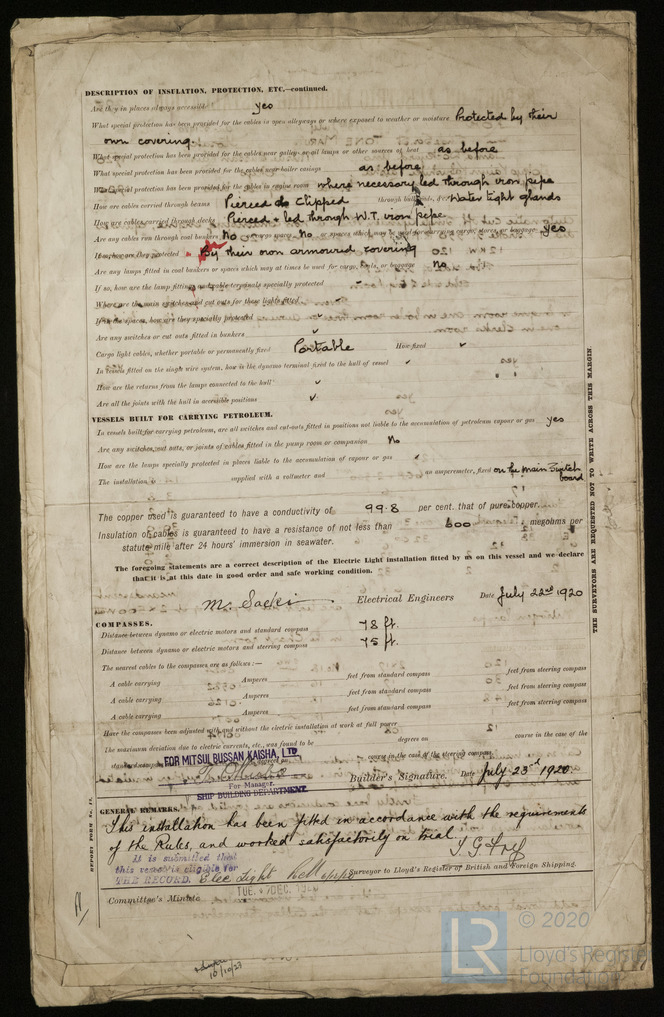 DESCRIPTION OF INSULATION, PROTECTION, ETC.—continued.
Are they in places always accessible yes
What special protection has been provided for the cables in open alleyways or where exposed to weather or moisture Protected by their
own covering.
What special protection has been provided for the cables near galleys or oil lamps or other sources of heat as before
What special protection has been provided for the cables near boiler casings as before
What special protection has been provided for the cables in engine room where necessary led through iron pipe
How are cables carried through beams Pierced & Clipped through bulkheads, &c. Water tight glands
How are cables carried through decks Pierced & led through W.T. iron pipe
Are any cables run through coal bunkers No or cargo spaces No or spaces which may be used for carrying cargo, stores, or baggage yes
If so, how are they protected By their own armoured covering
Are any lamps fitted in coal bunkers or spaces which may at times be used for cargo, coals, or baggage No
If so, how are the lamp fittings and cable terminals specially protected
Where are the main switches and cut outs for these lights fitted
If in the spaces, how are they specially protected
Are any switches or cut outs fitted in bunkers
Cargo light cables, whether portable or permanently fixed Portable How fixed
In vessels fitted on the single wire system, how is the dynamo terminal fixed to the hull of vessel
How are the returns from the lamps connected to the hull
Are all the joints with the hull in accessible positions
VESSELS BUILT FOR CARRYING PETROLEUM.
In vessels built for carrying petroleum, are all switches and cut-outs fitted in positions not liable to the accumulation of petroleum vapour or gas yes
Are any switches, cut outs, or joints of cables fitted in the pump room or companion No
How are the lamps specially protected in places liable to the accumulation of vapour or gas
The installation is supplied with a voltmeter and an amperemeter, fixed on the main switch
board
The copper used is guaranteed to have a conductivity of 99.8 per cent. that of pure copper.
Insulation of cables is guaranteed to have a resistance of not less than 600 megohms per
statute mile after 24 hours' immersion in seawater.
The foregoing statements are a correct description of the Electric Light installation fitted by us on this vessel and we declare
that it is at this date in good order and safe working condition.
Electrical Engineers Date July 22nd 1920
COMPASSES.
Distance between dynamo or electric motors and standard compass 78 ft.
Distance between dynamo or electric motors and steering compass 75 ft.
The nearest cables to the compasses are as follows:—
A cable carrying Amperes feet from standard compass feet from steering compass
A cable carrying Amperes feet from standard compass feet from steering compass
A cable carrying Amperes feet from standard compass feet from steering compass
Have the compasses been adjusted with and without the electric installation at work at full power
The maximum deviation due to electric currents, etc., was found to be degrees on course in the case of the
standard compass and degrees on course in the case of the steering compass.
FOR MITSUI BUSSAN KAISHA, LTD
For Manager.
SHIP BUILDING DEPARTMENT.
Builder's Signature. Date July 23rd 1920.
GENERAL REMARKS.
This installation has been fitted in accordance with the requirements
of the Rules, and worked satisfactorily on trial.
It is submitted that
this vessel is eligible for
THE RECORD. Elec Light
Surveyor to Lloyd's Register of British and Foreign Shipping.
TUE. 7 DEC. 1920
Committee's Minute
16/10/23
REPORT FORM No. 13.
THE SURVEYORS ARE REQUESTED NOT TO WRITE ACROSS THIS MARGIN.
© 2020
LR
Lloyd's Register
Foundation